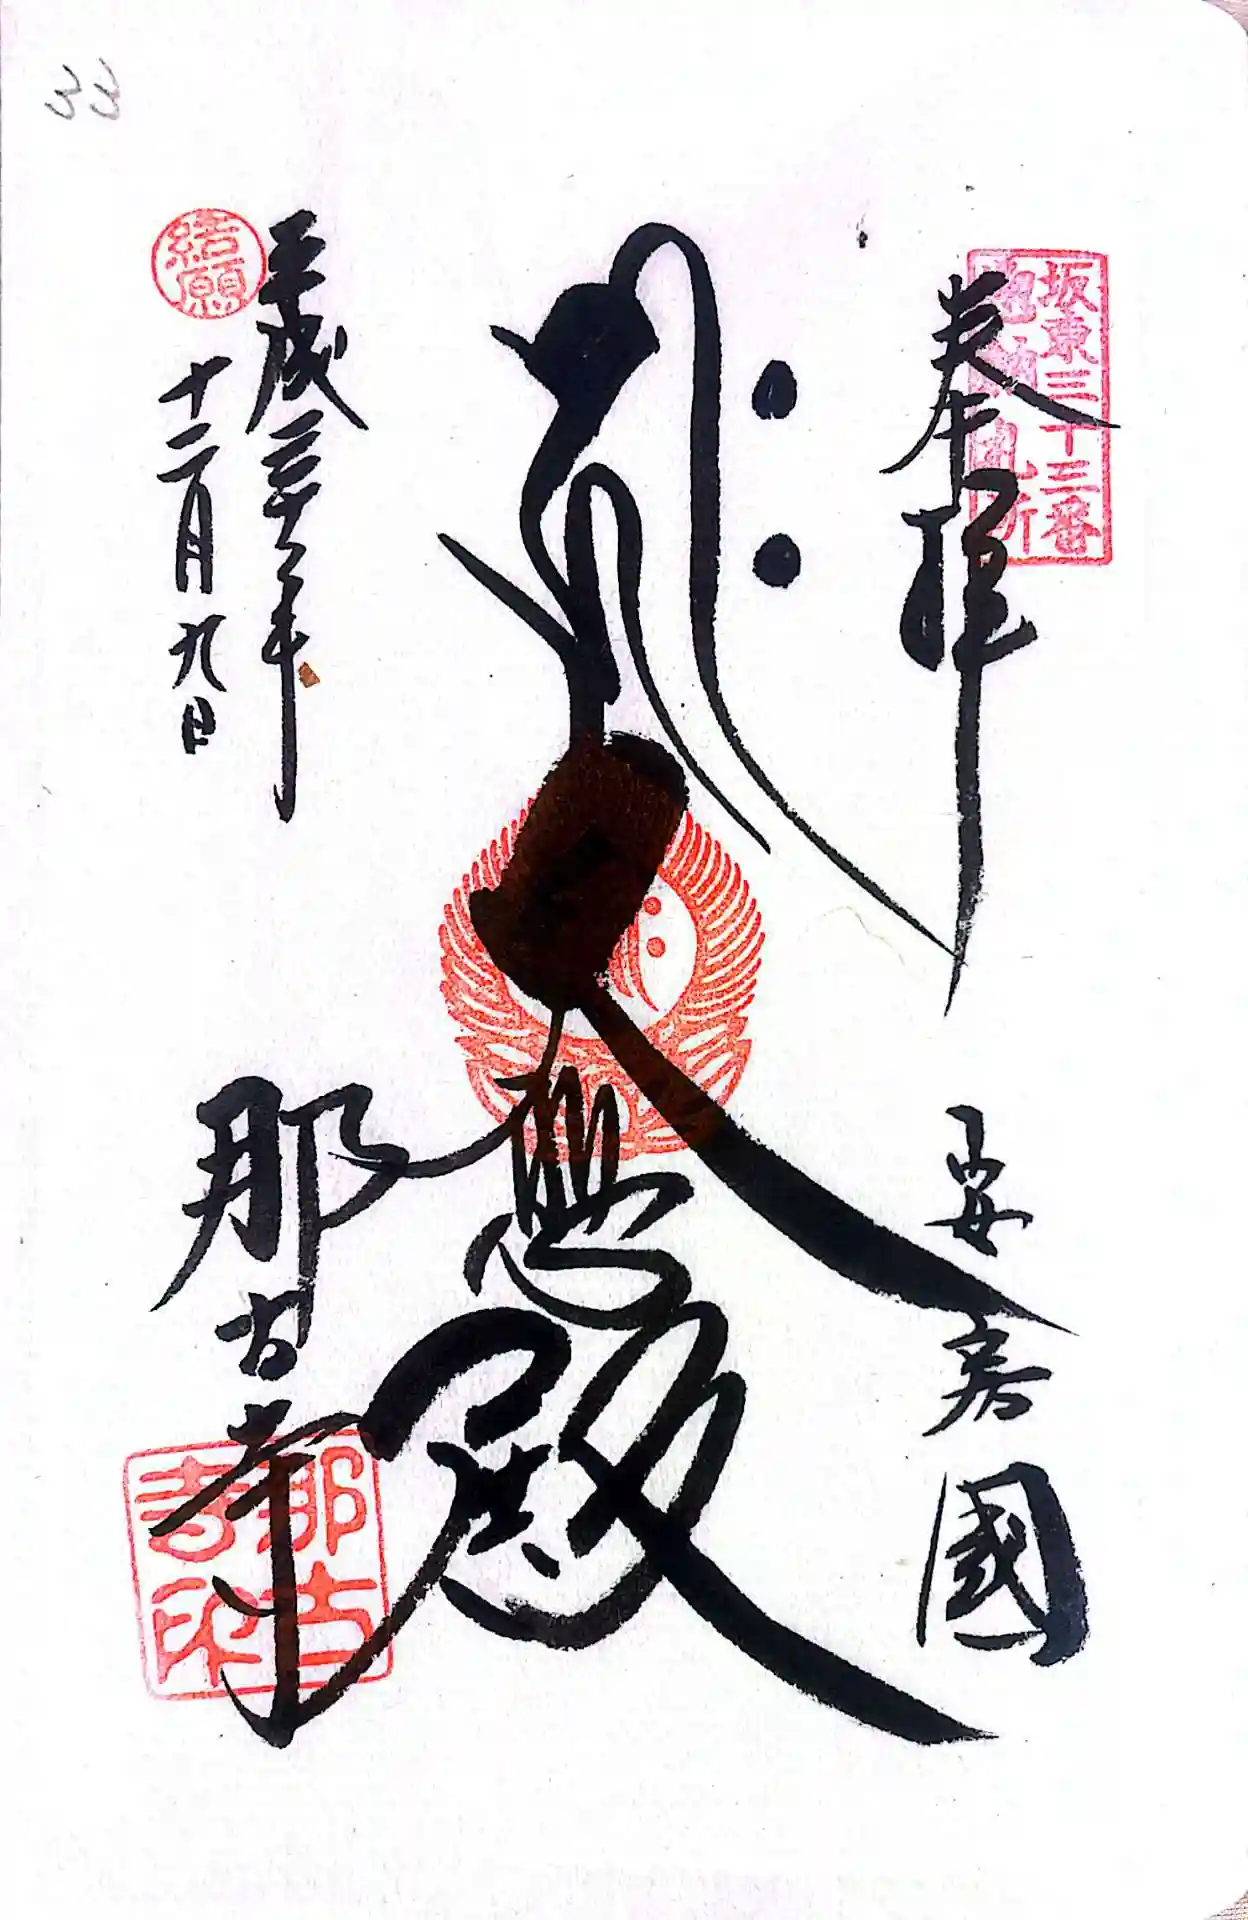 33
坂東三十三番
奉拝
安房國
大悲殿
平成三十年
十二月九日
結願
那古寺
那古
寺印